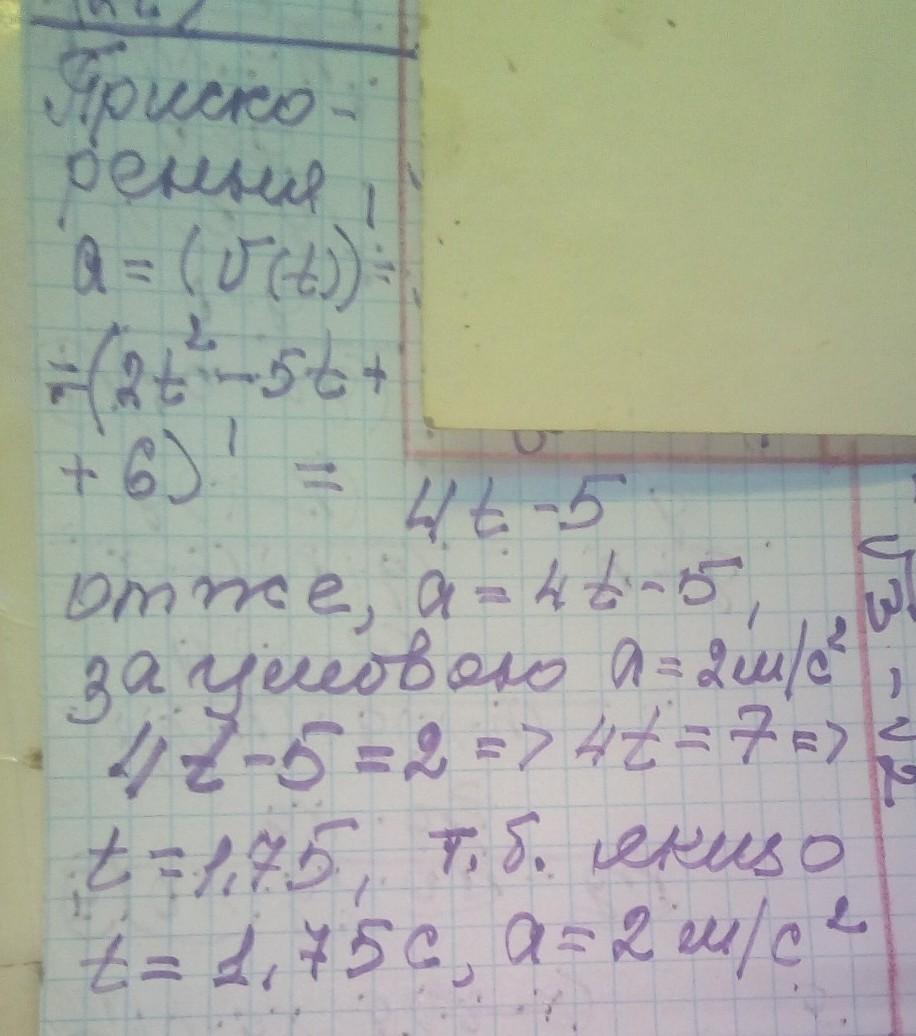 Приско-
рення
a = (v(t))' =
= (2t² - 5t +
+ 6)' = 4t - 5
отже, a = 4t - 5,
за умовою a = 2м/с²
4t - 5 = 2 => 4t = 7 =>
t = 1,75, т.б. якщо
t = 1,75с, a = 2м/с²